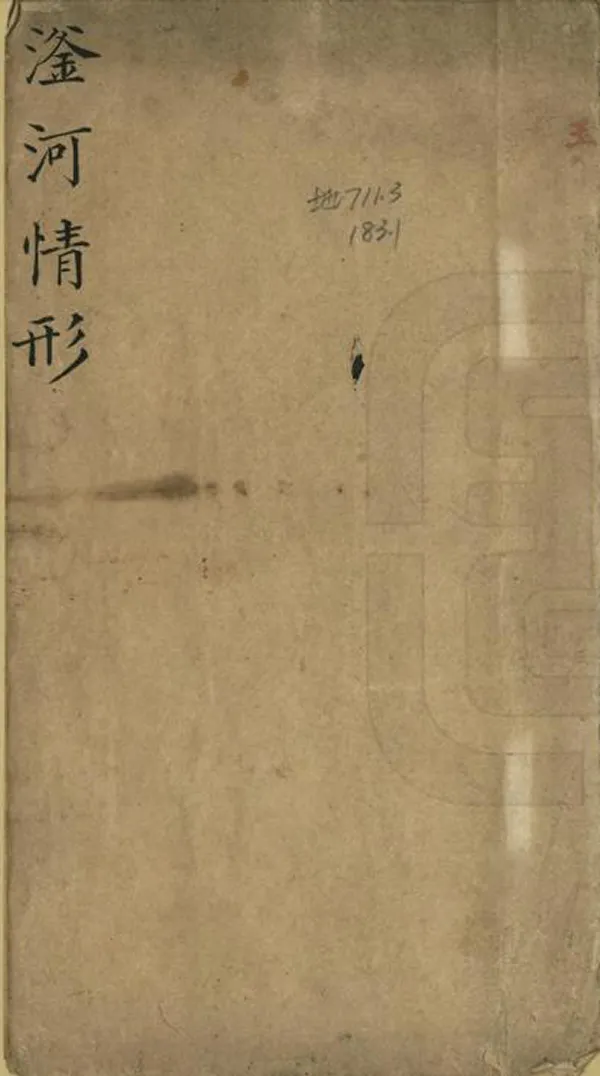 滏河情形
地711.3
1831
五